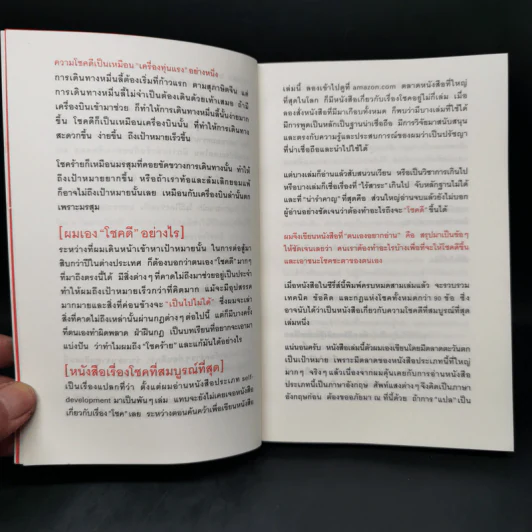 ความโชคดีเป็นเหมือน "เครื่องทุ่นแรง" อย่างหนึ่ง
การเดินทางหมื่นลี้ต้องเริ่มที่ก้าวแรก ตามสุภาษิตจีน แต่
การเดินทางหมื่นลี้ไม่จำเป็นต้องเดินด้วยเท้าเสมอ ถ้ามี
เครื่องบินเข้ามาช่วย ก็ทำให้การเดินทางหมื่นลี้นั้นง่ายมาก
ขึ้น โชคดีก็เป็นเครื่องบินนั้น ที่ทำให้การเดินทางไป
สะดวกขึ้น ง่ายขึ้น ถึงเป้าหมายเร็วขึ้น
โชคร้ายก็เหมือนมรสุมที่คอยขัดขวางการเดินทางนั้น ทำให้
ถึงเป้าหมายยากขึ้น หรือถ้าเราท้อและล้มเลิกยอมแพ้
ก็อาจไม่ถึงเป้าหมายนั้นเลย เหมือนกับเครื่องบินลำนั้นตก
เพราะมรสุม
[ผมเอง "โชคดี" อย่างไร]
ระหว่างที่ผมเดินหน้าเข้าหาเป้าหมายนั้น ในการต่อสู้มา
สิบกว่าปีในต่างประเทศ ก็ต้องบอกว่าตนเอง "โชคดี" มากๆ
ที่มาถึงตรงนี้ได้ มีสิ่งต่างๆ ที่คาดไม่ถึงมาช่วยอยู่เป็นประจำ
ทำให้ผมถึงเป้าหมายเร็วกว่าที่คิดมาก แม้จะมีอุปสรรค
มากมายและสิ่งที่ค่อนข้างจะ "เป็นไปไม่ได้" ซึ่งผมจะเล่า
สิ่งที่คาดไม่ถึงเหล่านั้นผ่านกฎต่างๆ ต่อไปนี้ แต่ก็มีบางครั้ง
ที่ตนเองทำผิดพลาด ฝ่าฝืนกฎ เป็นบทเรียนที่อยากจะเอามา
แบ่งปัน ว่าทำไมผมถึง "โชคร้าย" และแก้มันได้อย่างไร
[หนังสือเรื่องโชคที่สมบูรณ์ที่สุด]
เป็นเรื่องแปลกที่ว่า ตั้งแต่ผมอ่านหนังสือประเภท self-
development มาเป็นพันๆ เล่ม แทบจะยังไม่เคยเจอหนังสือ
เกี่ยวกับเรื่อง "โชค" เลย ระหว่างตอนค้นคว้าเพื่อเขียนหนังสือ
เล่มนี้ ลองเข้าไปดูที่ amazon.com ตลาดหนังสือที่ใหญ่
ที่สุดในโลก ก็มีหนังสือเกี่ยวกับเรื่องโชคอยู่ไม่กี่เล่ม เมื่อ
ลองสั่งหนังสือที่มีมาเกือบทั้งหมด ก็พบว่ามีบางเล่มที่ใช้ได้
มีการพูดเป็นหลักฐานน่าเชื่อถือ มีการวิจัยมาสนับสนุน
และตรงกับความรู้และประสบการณ์ของผมว่าเป็นปรัชญา
ที่น่าเชื่อถือและนำไปใช้ได้
แต่บางเล่มก็อ่านแล้วสับสนวนเวียน หรือเป็นวิชาการเกินไป
หรือบางเล่มก็เชื่อเรื่องที่ "ไร้สาระ" เกินไป จับหลักฐานไม่ได้
และที่ "น่ารำคาญ" ที่สุดคือ ส่วนใหญ่อ่านจบแล้วยังไม่บอก
ผู้อ่านอย่างชัดเจนว่าต้องทำอะไรถึงจะ "โชคดี" ขึ้นได้
ผมจึงเขียนหนังสือที่ "ตนเองอยากอ่าน" คือ สรุปมาเป็นข้อๆ
ให้ชัดเจนเลยว่า คนเราต้องทำอะไรบ้างเพื่อที่จะให้โชคดีขึ้น
และเอาชนะโชคชะตาของตนเอง
เมื่อหนังสือในซีรี่ส์นี้พิมพ์ครบหมดสามเล่มแล้ว จะรวบรวม
เทคนิค ข้อคิด และกฎแห่งโชคทั้งหมดกว่า ๓๐ ข้อ ซึ่ง
อาจนับได้ว่าเป็นหนังสือเกี่ยวกับความโชคดีที่สมบูรณ์ที่สุด
เล่มหนึ่ง
แน่นอนครับ หนังสือเล่มนี้ตัวผมเองเขียนโดยมีตลาดตะวันตก
เป็นเป้าหมาย เพราะมีตลาดของหนังสือประเภทนี้ที่ใหญ่
มากๆ จริงๆ แล้วเนื่องจากผมคุ้นเคยกับการอ่านหนังสือ
ประเภทนี้เป็นภาษาอังกฤษ ศัพท์แสงต่างๆ จึงคิดเป็นภาษา
อังกฤษก่อน ต้องขออภัยมา ณ ที่นี้ด้วย ถ้าการ "แปล" เป็น